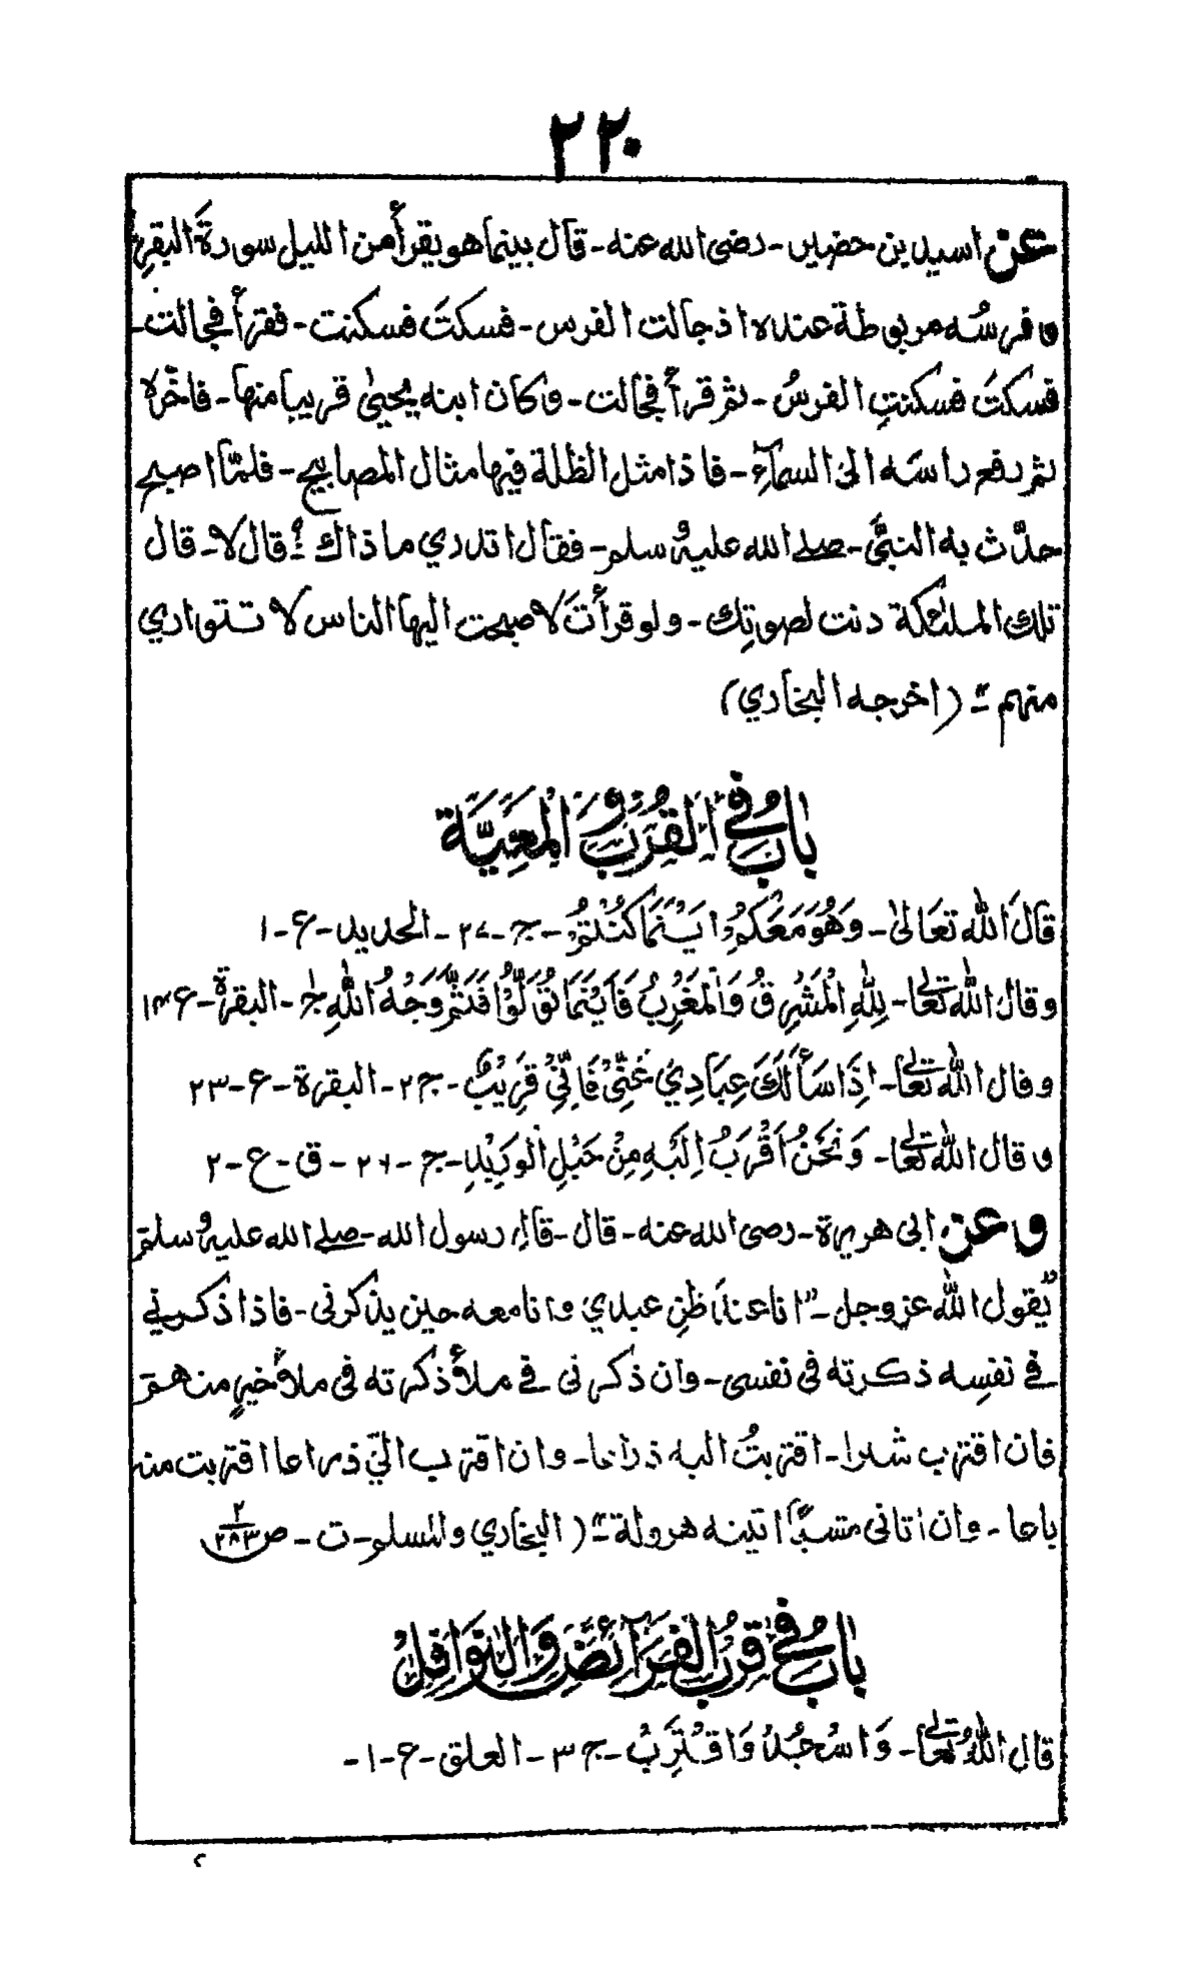 ٢٢٠
عن اسيد بن حضير۔ رضى الله عنه۔ قال بينما هو يقرأ من الليل سورة البقرة
و فرسُه مربوطة عنده اذ جالت الفرس۔ فسكتَ فسكنت۔ فقرأ فجالت۔
فسكتَ فسكنتِ الفرسُ۔ ثم قرأ فجالت۔ و كان ابنه يحيىٰ قريبا منها۔ فاخّره
ثم رفع راسَه الى السمآءِ۔ فاذا مثل الظلة فيها مثال المصابيح۔ فلمّا اصبح
حدّث به النبيَّ۔ صلے الله عليه و سلم۔ فقال اتدري ما ذاك؟ قال لا۔ قال
تلك الملئكة دنت لصوتِك۔ و لو قرأتَ لاصبحت اليها الناس لا تتواري
منهم "۔ (اخرجه البخاري)
بابُ فِي الْقُرْبِ وَ الْمَعِيَّة
قالَ اللّٰه تعَالىٰ۔ وَهُوَ مَعَكُمْ اَيْنَمَا كُنْتُمْ۔ ج۔ ٢٧۔ الحديد۔ ع۔ ١
و قال اللّٰه تعالى۔ لِلّٰهِ الْمَشْرِقُ وَالْمَغْرِبُ فَاَيْنَمَا تُوَلُّوْا فَثَمَّ وَجْهُ اللّٰهِ ج۱۔ البقرة۔ ع ١٣
و قال اللّٰه تعالى۔ اِذَا سَأَلَكَ عِبَادِي عَنِّيْ فَاِنِّيْ قَرِيْبٌ۔ ج٢۔ البقرة۔ ع۔ ٢٣
و قال اللّٰه تعالى۔ وَ نَحْنُ اَقْرَبُ اِلَيْهِ مِنْ حَبْلِ الْوَرِيْدِ۔ ج۔ ٢٦۔ ق۔ ع۔ ٢
و عن ابى هريرة۔ رضى الله عنه۔ قال۔ قال رسول الله۔ صلے الله عليه و سلم
يقول اللّٰه عزوجل۔ "انا عند ظنِ عبدي و انا معه حين يذكرنى۔ فاذا ذكرني
في نفسِه ذكرته فى نفسى۔ وان ذكرنى في ملأ ذكرته فى ملأ خيرٍ منهم
فان اقترب شبرا۔ اقتربتُ اليه ذراعا۔ وان اقترب اليّ ذراعا اقتربت منه
باعا۔ وان اتانى مشيًا اتيته هرولة "۔ (البخاري والمسلم۔ ت۔ ص ٢/٢٨٣
بابُ فِي قُرْبِ الْفَرَآئِضِ وَالنَّوَافِلْ
قال اللّٰهُ تعالى۔ وَاسْجُدْ وَاقْتَرِبْ۔ ج ٣٠۔ العلق۔ ع۔ ١۔